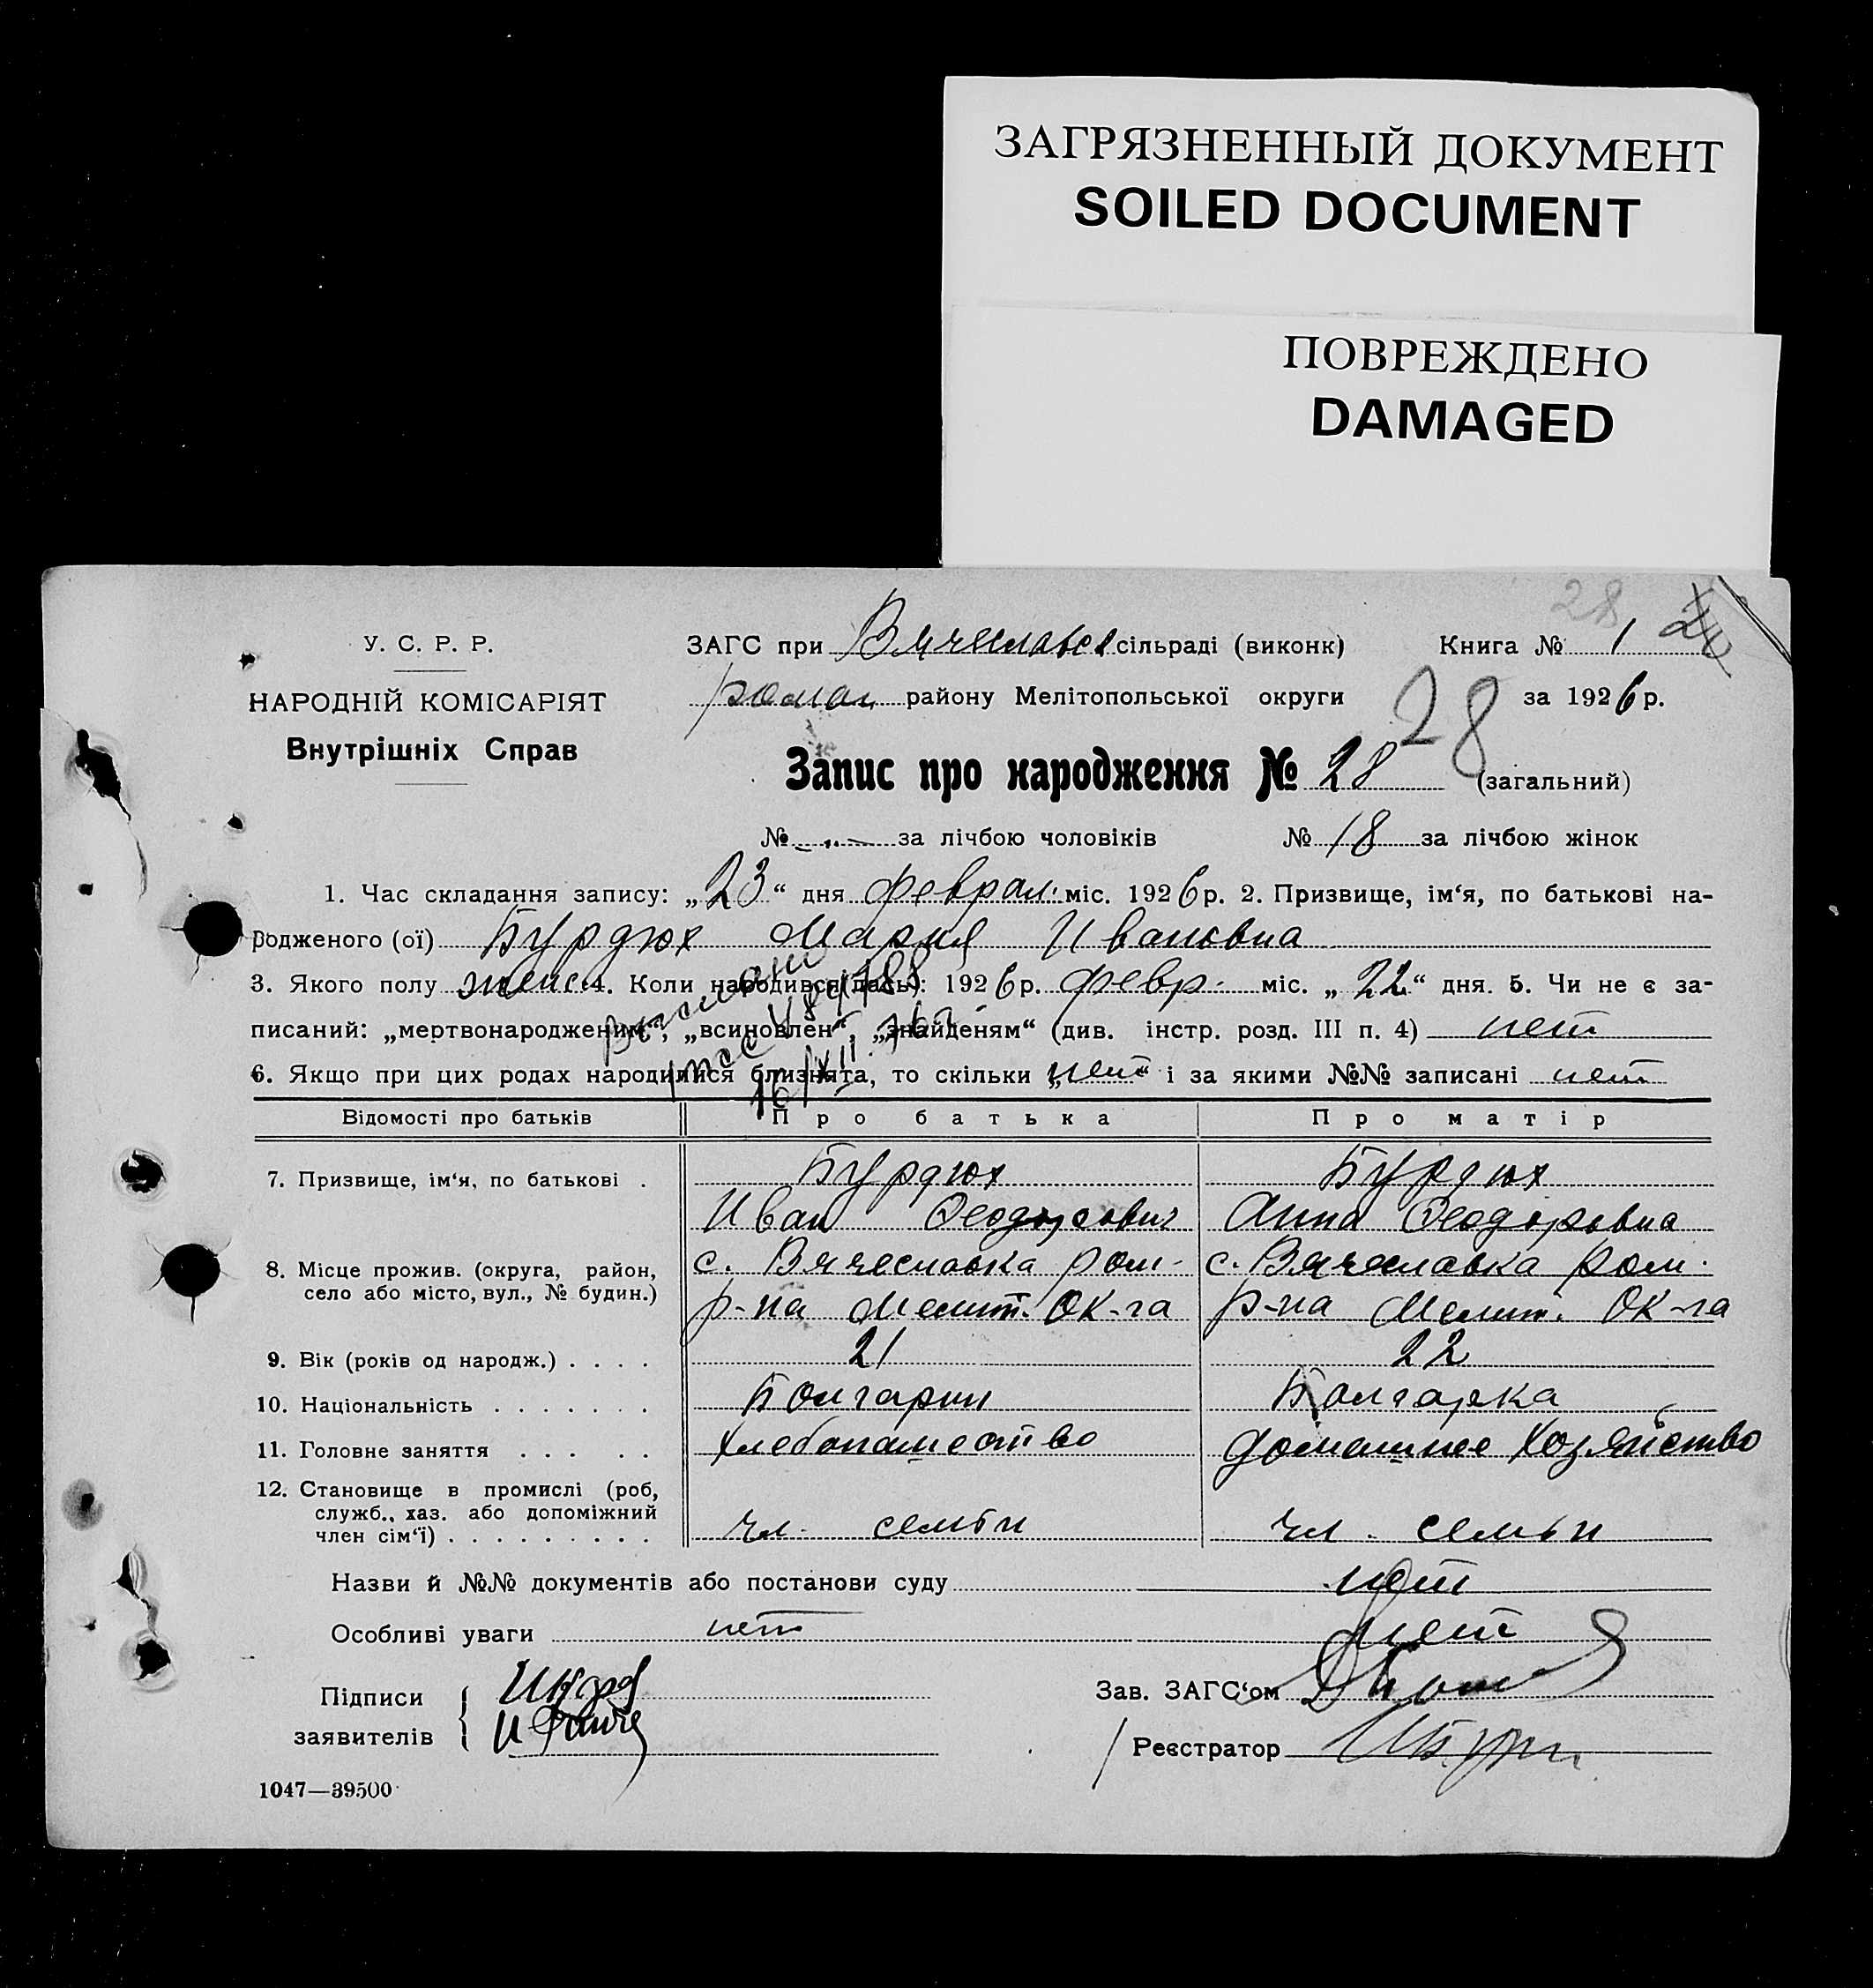 ЗАГРЯЗНЕННЫЙ ДОКУМЕНТ
SOILED DOCUMENT
ПОВРЕЖДЕНО
DAMAGED
28
У. С. Р. Р.
ЗАГС при Вячеславск сільраді (виконк)
Книга № 1
НАРОДНІЙ КОМІСАРІЯТ
роман району Мелітопольської округи
28
за 1926 р.
Внутрішніх Справ
Запис про народження № 28 (загальний)
№ „ за лічбою чоловіків № 18 за лічбою жінок
1. Час складання запису: „23“ дня феврал. міс. 1926 р. 2. Призвище, ім‘я, по батькові на-
родженого (ої) Бурдюх Мария Ивановна
3. Якого полу женс. 4. Коли народився (лась): 1926 р. февр. міс. „22“ дня. 5. Чи не є за-
писаний: „мертвонародженим“, „всиновлен“, „знайденям“ (див. інстр. розд. III п. 4) нет
6. Якщо при цих родах народилися близнята, то скільки „нет“ і за якими №№ записані нет
16/XII
Відомості про батьків Про батька Про матір
7. Призвище, ім‘я, по батькові . Бурдюх Бурдюх
Иван Феодорович Анна Феодоровна
8. Місце прожив. (округа, район, с. Вячеславка ром- с. Вячеславка ром.
село або місто, вул., № будин.) р-на Мелит. ОК-га р-на Мелит. ОК-га
9. Вік (років од народж.) . . . . 21 22
10. Національність . . . . . . . Болгарин Болгарка
11. Головне заняття . . . . . Хлебопашество домашнее Хозяйство
12. Становище в промислі (роб,
служб., хаз. або допоміжний
член сім‘ї) . . . . . . . . . чл. семьи чл. семьи
Назви й №№ документів або постанови суду нет
Особливі уваги нет нет
Підписи
заявителів
Зав. ЗАГС‘ом
Реєстратор
1047—39500